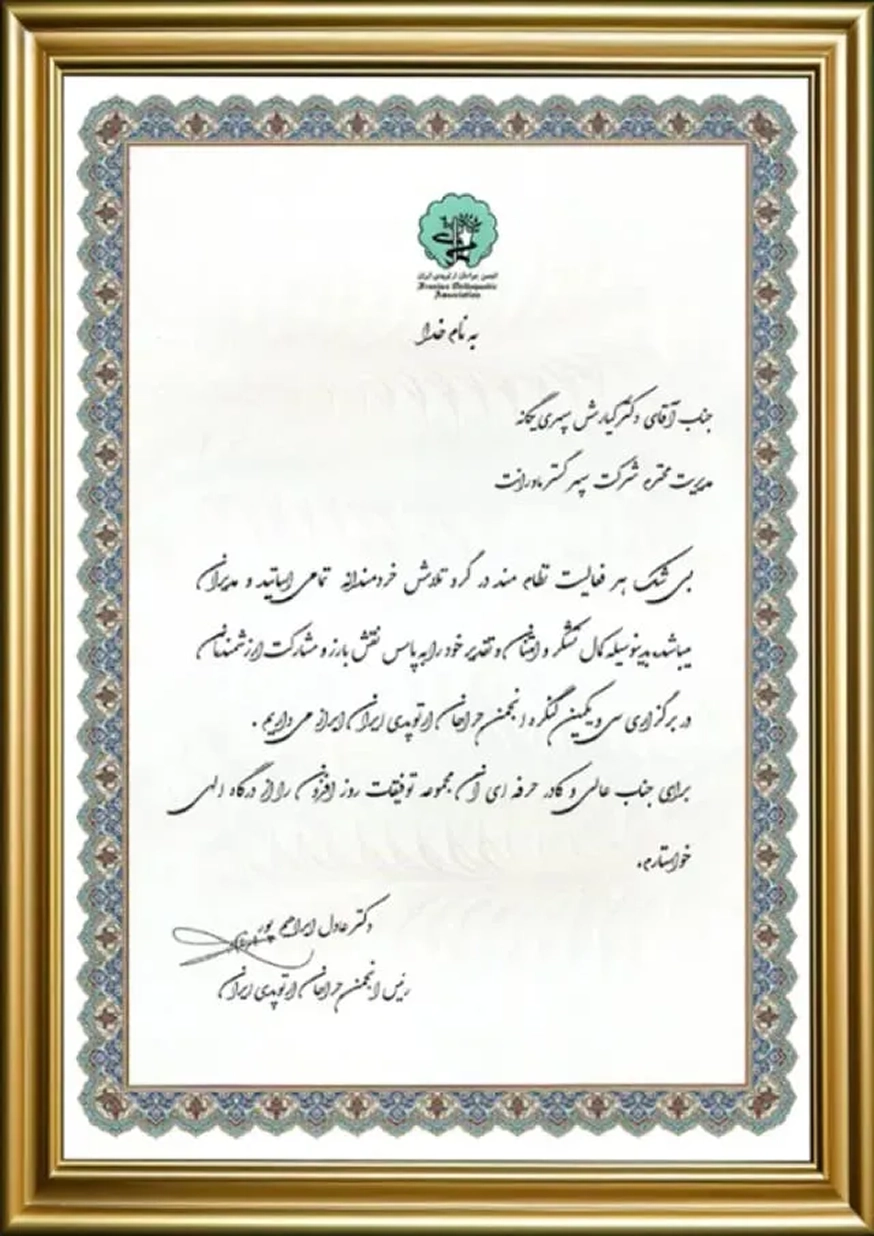 انجمن جراحان ارتوپدی ایران
Iranian Orthopaedic
Association
به نام خدا
جناب آقای دکتر کیارش سپهری یگانه
مدیریت محترم شرکت سپهر گستر ماد رانت
بی شک هر فعالیت نظام مند در گرد تلاش خردمندانه تمامی اساتید و مدیران
میباشد. بدینوسیله کمال تشکر و امتنان و تقدیر خود را به پاس نقش بارز و مشارکت ارزشمندتان
در برگزاری سی و یکمین کنگره انجمن جراحان ارتوپدی ایران ابراز می داریم .
برای جناب عالی و کادر حرفه ای آن مجموعه توفیقات روز افزون را از درگاه الهی
خواستارم.
دکتر عادل ابراهیم پور
رئیس انجمن جراحان ارتوپدی ایران